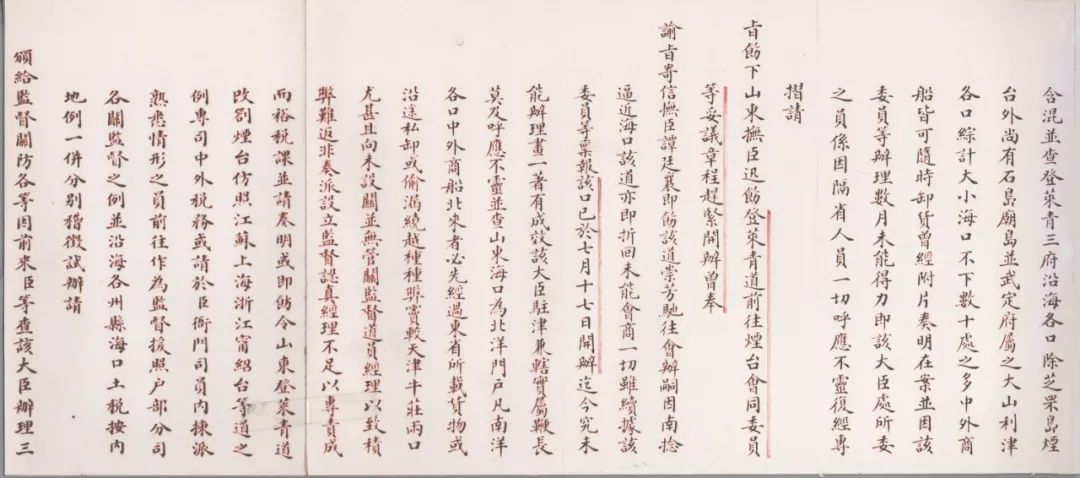 含混並查登萊青三府沿海各口除芝罘島煙
台外尚有石島廟島並武定府屬之大山利津
各口綜計大小海口不下數十處之多中外商
船皆可隨時卸貨曾經附片奏明在案並因該
委員等辦理數月未能得力即該大臣處所委
之員係因隔省人員一切呼應不靈復經專
摺請
旨飭下山東撫臣迅飭登萊青道前往煙台會同委員
等妥議章程趕緊開辦曾奉
諭旨寄信撫臣譚廷襄即飭該道崇芳馳往會辦嗣因南捻
逼近海口該道亦即折回未能會商一切雖續據該
委員等稟報該口已於七月十七日開辦迄今究未
能辦理畫一著有成效該大臣駐津兼轄實屬鞭長
莫及呼應不靈並查山東海口為北洋門戶凡南洋
各口中外商船北來者必先經過東省所載貨物或
沿途私卸或偷漏繞越種種弊竇較天津牛莊兩口
尤甚且向未設關並無管關監督道員經理以致積
弊難返非奏派設立監督認真經理不足以專責成
而裕稅課並請奏明或即飭令山東登萊青道
改劄煙台仿照江蘇上海浙江甯紹台等道之
例專司中外稅務或請於臣衙門司員內揀派
熟悉情形之員前往作為監督援照戶部分司
各關監督之例並沿海各州縣海口土稅按內
地例一併分別稽徵試辦請
頒給監督關防各等因前來臣等查該大臣辦理三